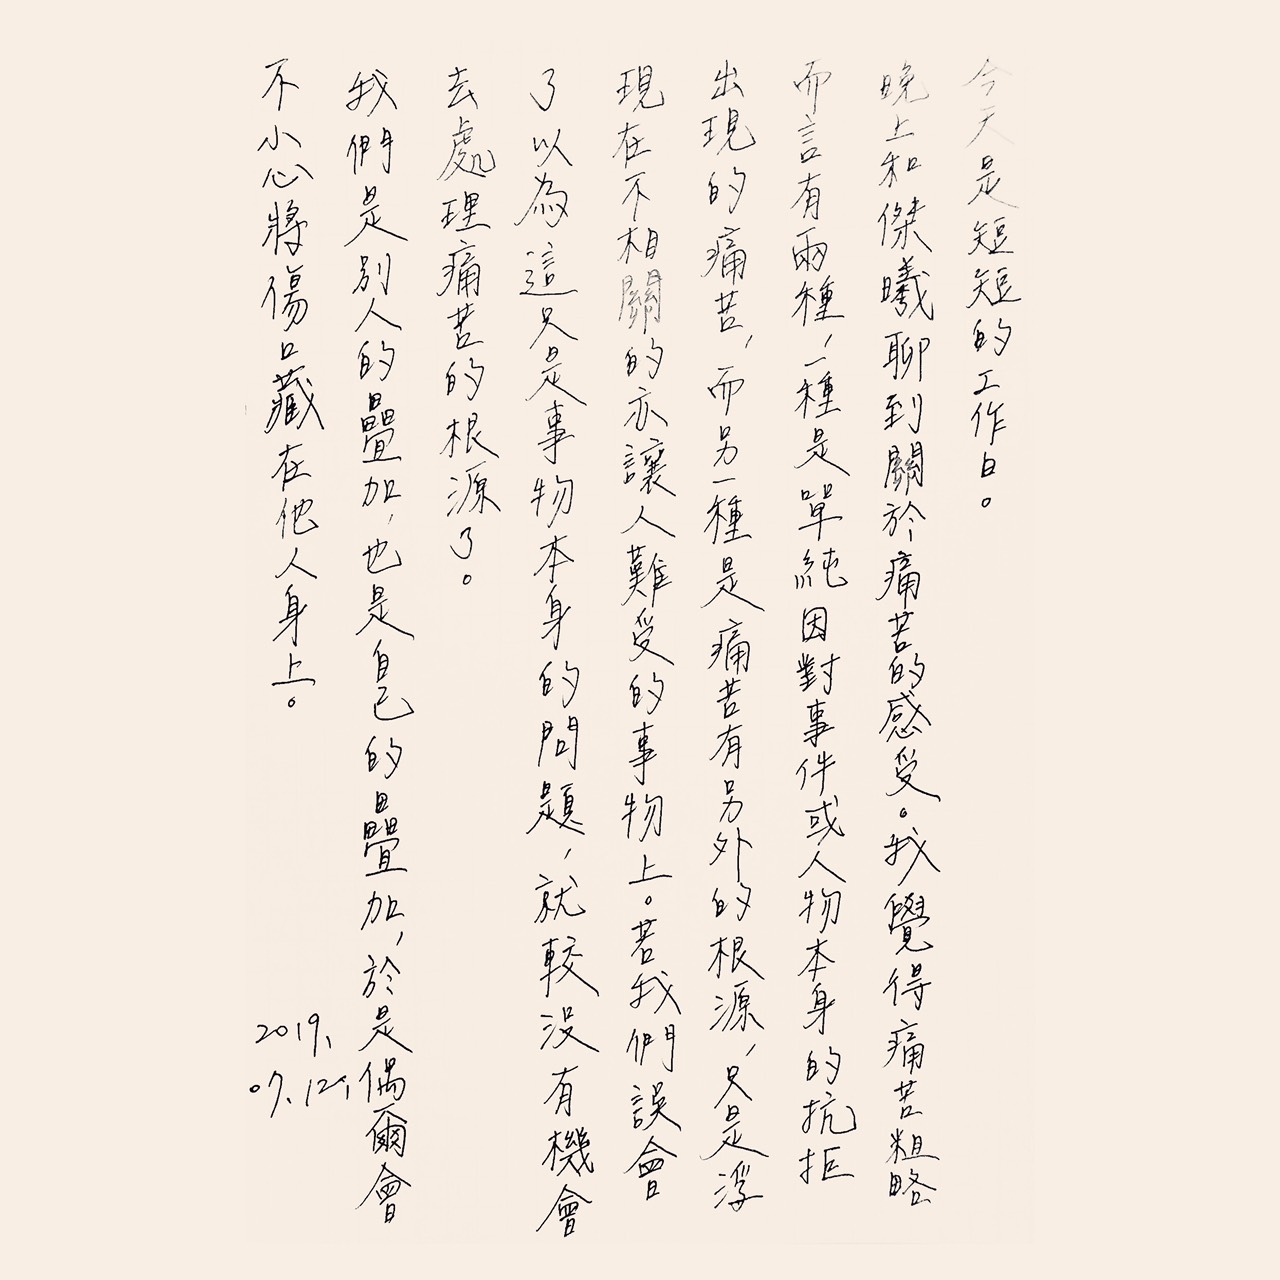 今天是短短的工作日。
晚上和傑曦聊到關於痛苦的感受。我覺得痛苦粗略
而言有兩種，一種是單純因對事件或人物本身的抗拒
出現的痛苦，而另一種是痛苦有另外的根源，只是浮
現在不相關的亦讓人難受的事物上。若我們誤會
了以為這只是事物本身的問題，就較沒有機會
去處理痛苦的根源了。
我們是別人的疊加，也是自己的疊加，於是偶爾會
不小心將傷口藏在他人身上。
2019.
07.12.